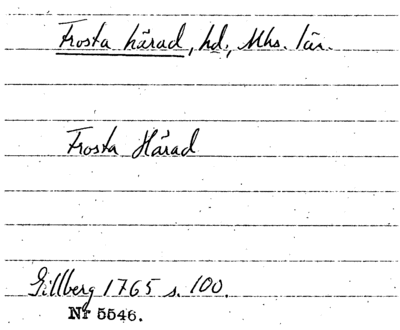 Frosta härad, hd., Mhs. län.
Frosta Härad
Gillberg 1765 s. 100.
Nr 5546.